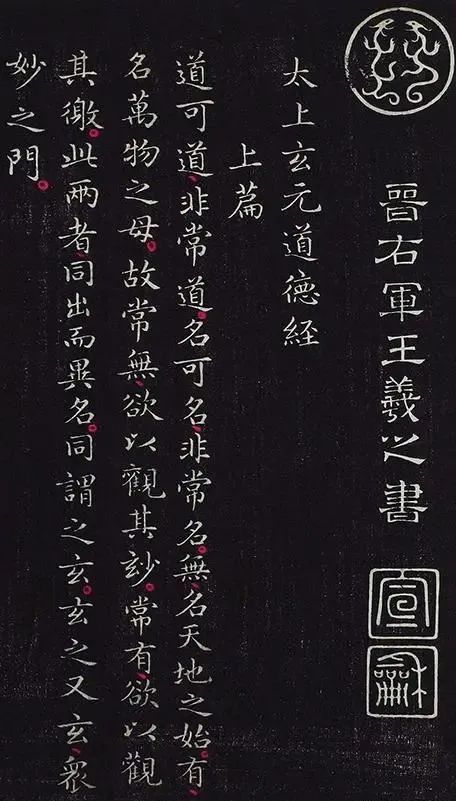 晉右軍王羲之書
宣
龢
太上玄元道德經
上篇
道可道、非常道、名可名、非常名。無、名天地之始。有、
名萬物之母。故常無、欲以觀其玅。常有、欲以觀
其徼。此兩者、同出而異名。同謂之玄。玄之又玄、衆
妙之門。